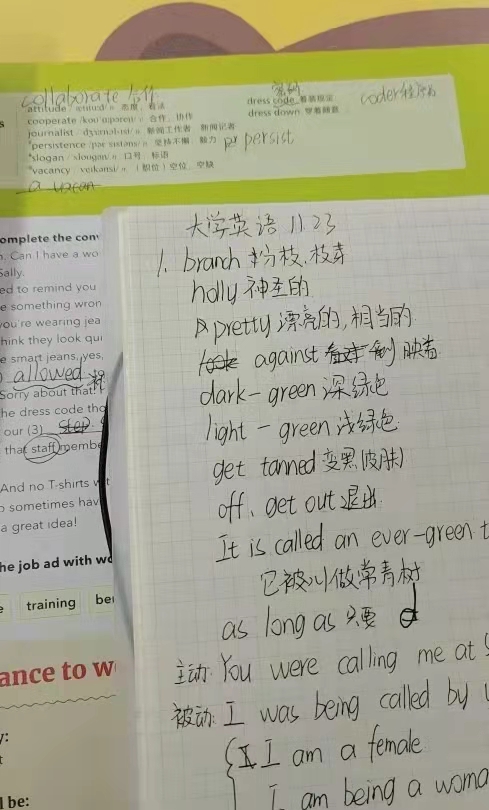 collaborate 合作
attitude n 态度，看法
cooperate v 合作，协作
journalist n 新闻工作者 新闻记者
*persistence n 坚持不懈，毅力
*slogan n 口号，标语
*vacancy n （职位）空位，空缺
dress code 着装规定
dress down 穿着随意
coder
persist
omplete the conv
. Can I have a wo
Sally.
ed to remind you
e something wron
ou're wearing jea
hink they look qui
e smart jeans, yes,
allowed
Sorry about that!
he dress code tho
our (3) step
that staff membe
And no T-shirts
o sometimes hav
a great idea!
he job ad with wo
e training be
ance to w
y:
l be:
大学英语 11.23
1. branch 分枝，枝芽
holly 神圣的
pretty 漂亮的，相当的
look against 映着
dark-green 深绿色
light-green 浅绿色
get tanned 变黑(皮肤)
off、get out 退出
It is called an ever-green t
它被叫做常青树
as long as 只要
主动: You were calling me at
被动: I was being called by
I am a female
I am being a woma